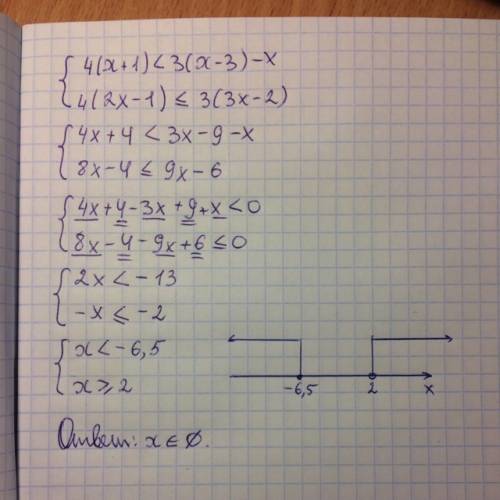 4(x+1)<3(x-3)-x
4(2x-1)≤3(3x-2)
4x+4<3x-9-x
8x-4≤9x-6
4x+4-3x+9+x<0
8x-4-9x+6≤0
2x<-13
-x≤-2
x<-6,5
x≥2
-6,5 2 x
Ответ: x∈∅.